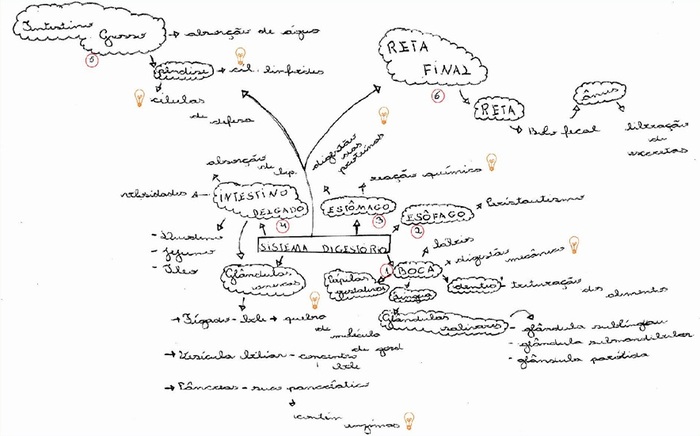 Intestino
Grosso → absorção de água
5
Apêndise → cél. linfoides
células
de
defesa
RETA
FINAL
6
RETA
Bolo fecal
ânus
liberação
de
excretas
absorção
de
digestão
das
proteínas
reação química
INTESTINO
DELGADO
4
ESTÔMAGO
3
ESÔFAGO
2
Peristaltismo
SISTEMA DIGESTÓRIO
- Duodeno
- Jejuno
- Íleo
Glândulas
anexas
1
BOCA
lábios
digestão
mecânica
Papilas
gustativas
língua
dentes - trituração
dos alimentos
Glândulas
salivares
- glândula sublingual
- glândula submandibular
- glândula parótida
→ Fígado - bile → quebra
de
molécula
de gord
→ Vesícula biliar - concentra
bile
→ Pâncreas - suco pancreático
contém
enzimas